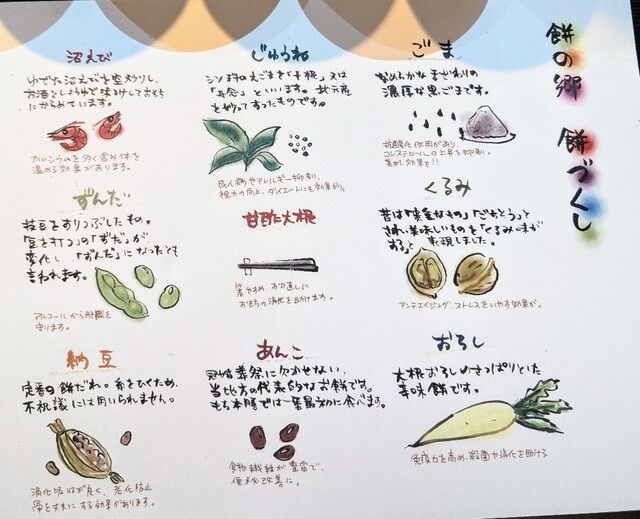 餅の郷 餅づくし
ごま
なめらかな舌ざわりの
濃厚な黒ごまです。
抗酸化作用があり、
コレステロールの上昇を抑制。
美肌効果も!!
くるみ
昔は「貴重なもの」「ごちそう」と
され、美味しいものを「くるみ味が
する」と表現しました。
アンチエイジング、ストレスをいやす効果が。
おろし
大根おろしのさっぱりとした
辛味餅です。
免疫力を高め、殺菌や消化を助ける
じゅうね
シソ科のえごまを「十根」又は
「寿念」といいます。地元産
を炒ってすったものです。
成人病やアレルギー抑制、
視力の向上、ダイエットにも効果的。
甘酢大根
箸やすめ、お口直しに
おもちの消化を助けます。
あんこ
冠婚葬祭に欠かせない、
当地方の代表的なお餅です。
もち本膳では一番最初に食べます。
食物繊維が豊富で、
便秘改善に。
沼えび
ゆでた沼えびを空炒りし、
お酒としょうゆで味つけしておもち
にからめています。
カルシウムを多く含み体を
温める効果があります。
ずんだ
枝豆をすりつぶしたもの。
「豆を打つ」の「ずだ」が
変化し、「ずんだ」になったとも
言われます。
アルコールから肝臓を
守ります。
納豆
定番の餅だれ。糸をひくため、
不祝儀には用いられません。
消化吸収が良く、老化防止
骨を丈夫にする効果があります。